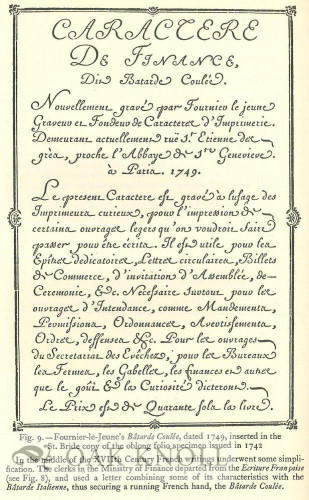 CARACTERE
DE FINANCE,
Dit Batarde Coulée.
Nouvellement gravé par Fournier le jeune
Graveur et Fondeur de Caracteres d'Imprimerie.
Demeurant actuellement rüe St. Etienne des
grès, proche l'Abbaye de Ste. Genevieve.
à Paris. 1749.
Le present Caractere est gravé à lusage des
Imprimeurs curieux, pour l'impression de
certains ouvrages legers qu'on voudroit faire
passer pour être écrits. Il est utile pour les
Epitres dédicatoires, Lettres circulaires, Billets
de Commerce, d'invitation d'Assemblée, de
Ceremonie, &c. Necessaire surtout pour les
ouvrages d'Intendance, comme Mandements,
Permissions, Ordonnances, Avertissements,
Ordres, deffenses &c. Pour les ouvrages
du Secretariat des Evêchés, pour les Bureaux
des Fermes, les Gabelles, les finances et autres
que le goût & la Curiosité dicteront.
Le Prix est de Quarante sols la livre.
Fig. 9.—Fournier-le-Jeune's Bâtarde Coulée, dated 1749, inserted in the
St. Bride copy of the oblong folio specimen issued in 1742
In the middle of the XVIIIth Century these writings underwent some simpli-
fication. The clerks in the Ministry of Finance departed from the Ecriture Française
(see Fig. 8), and used a letter combining some of its characteristics with the
Bâtarde Italienne, thus securing a running French hand, the Bâtarde Coulée.